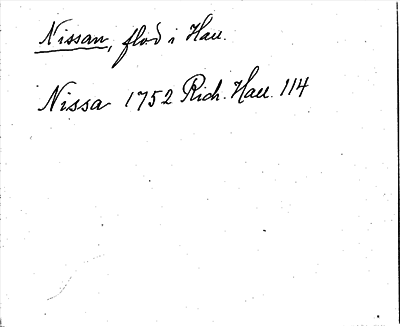 Nissan, flod i Hall.
Nissa 1752 Rich. Hall. 114